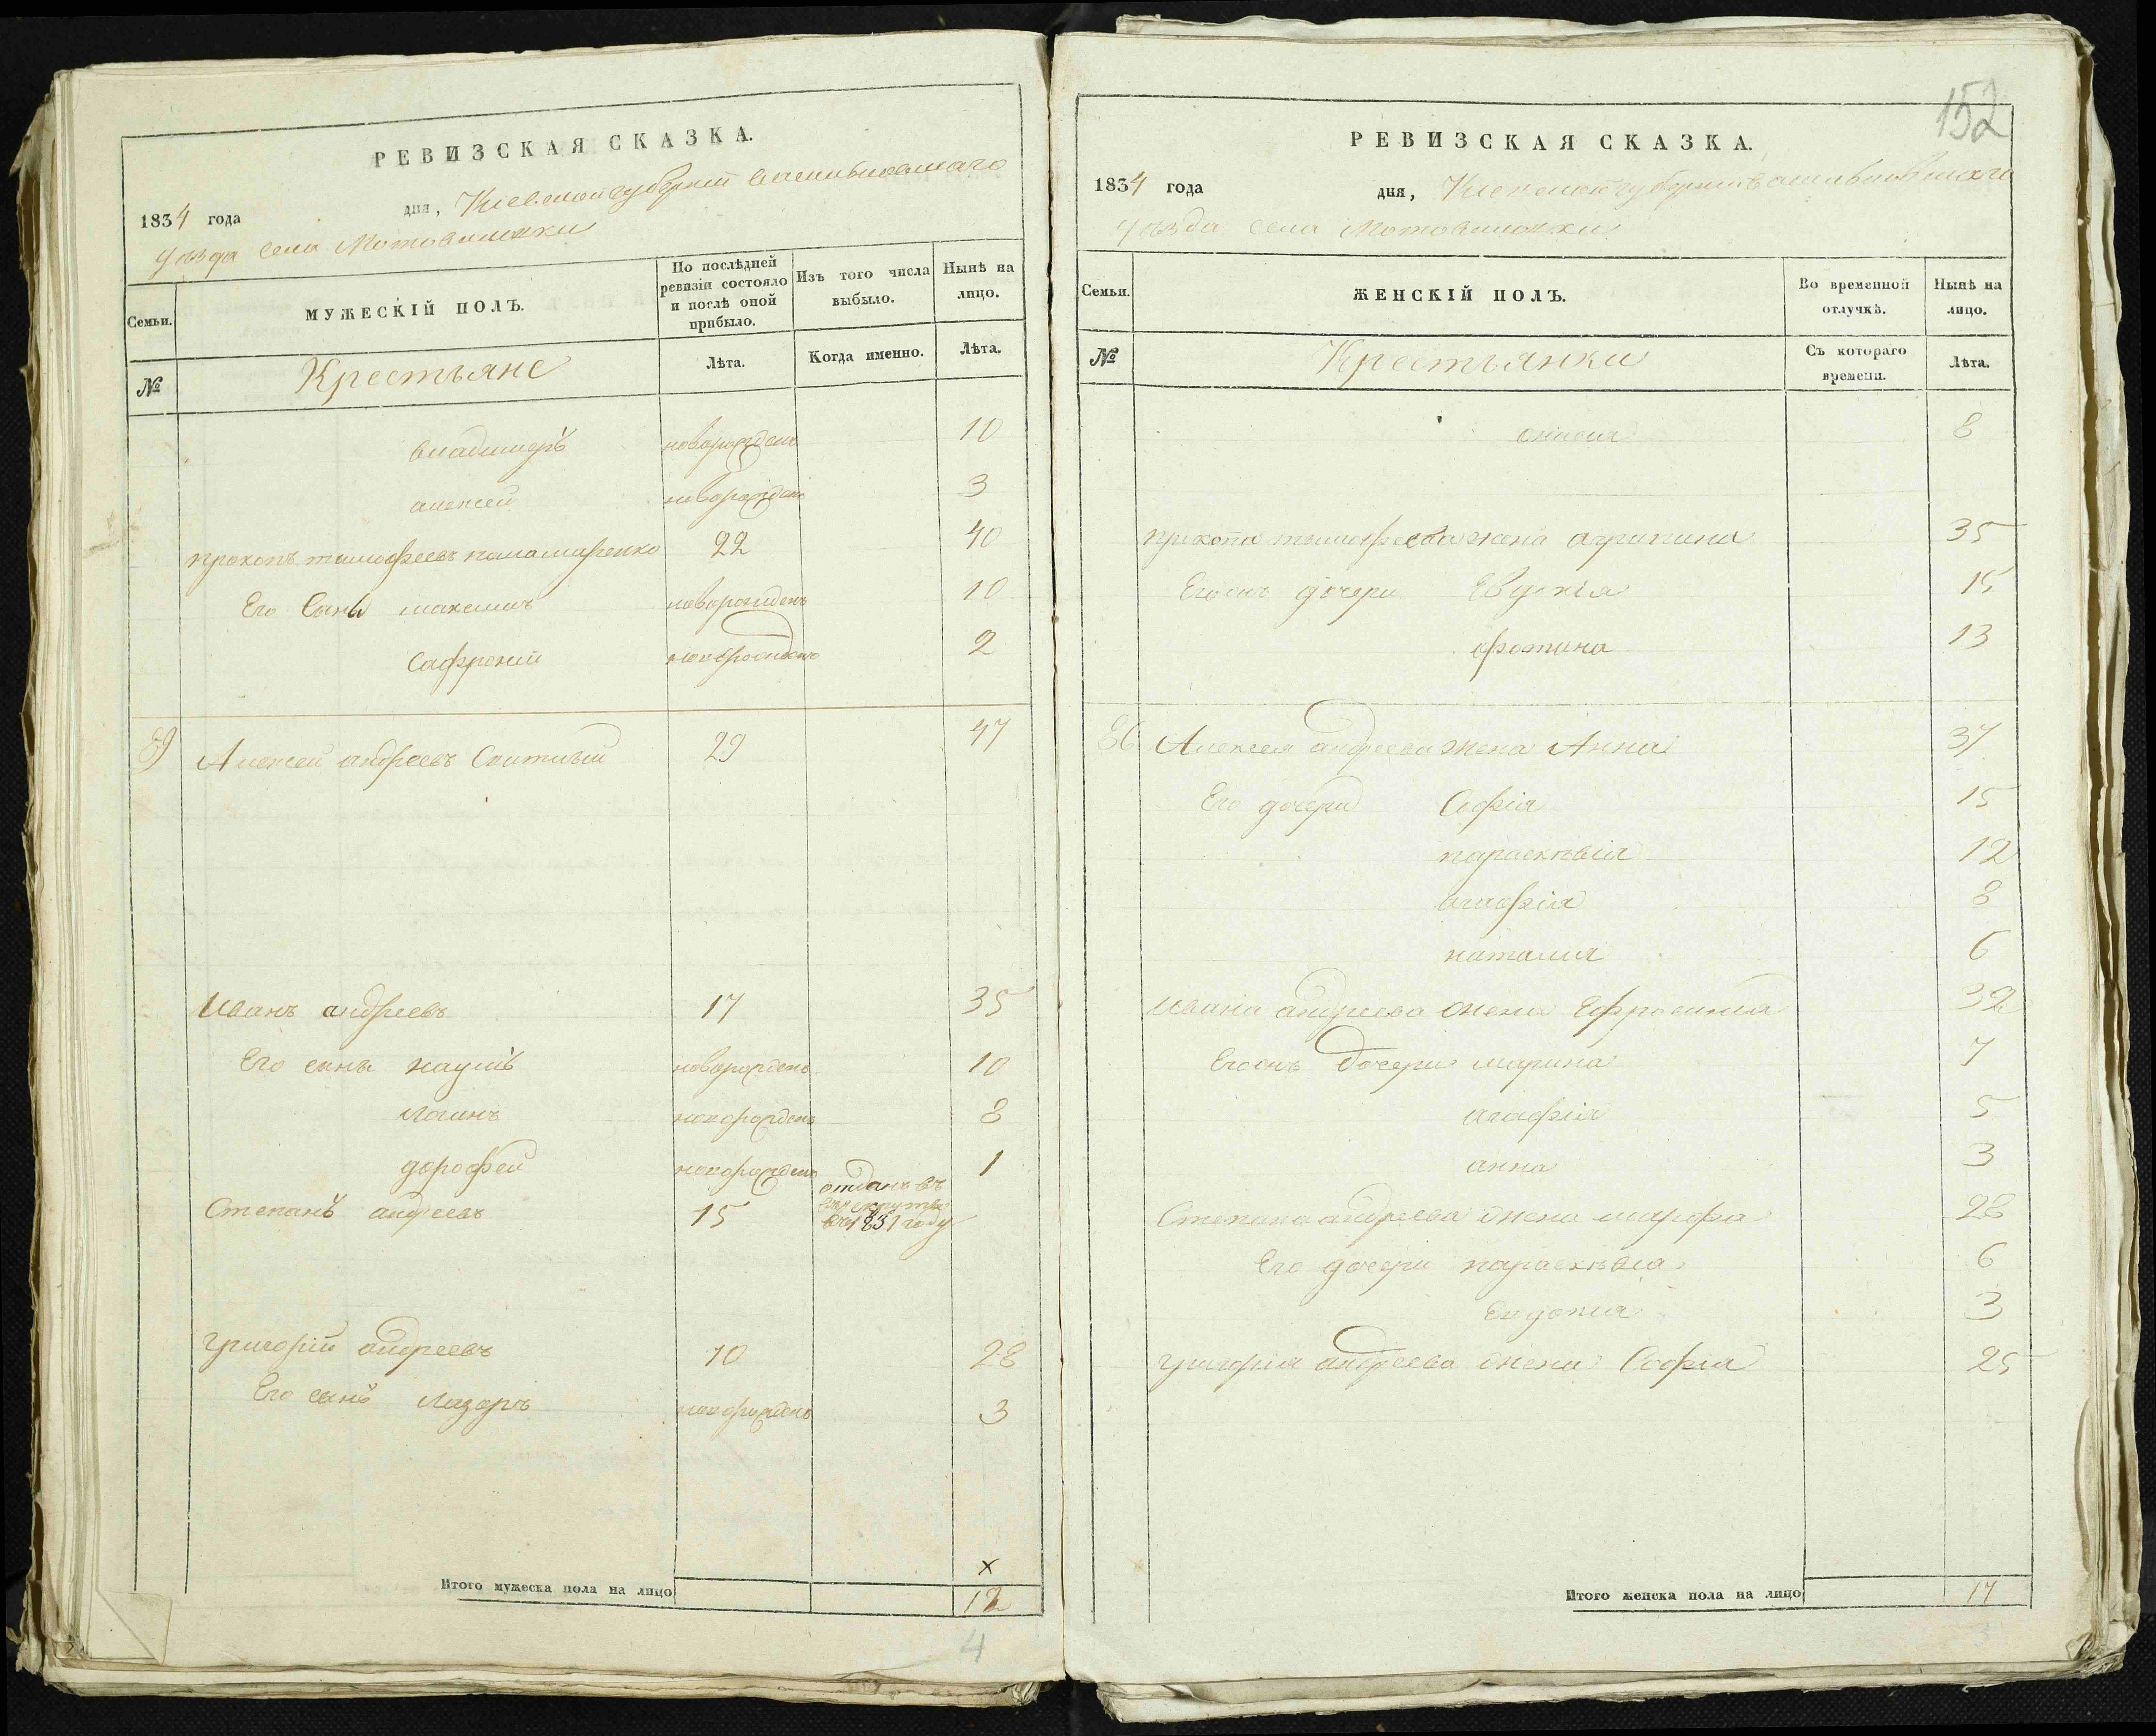 РЕВИЗСКАЯ СКАЗКА.
1834 года дня, Киевской губернїи Васильковскаго
уѣзда села Мотовиловки
Семьи.
МУЖЕСКІЙ ПОЛЪ.
По послѣдней ревизіи состояло и послѣ оной прибыло.
Изъ того числа выбыло.
Нынѣ на лицо.
№
Крестьяне
Лѣта.
Когда именно.
Лѣта.
владимеръ новорожденъ 10
алексей новорожденъ 3
прокопъ тимофеевъ паламаренко 22 40
Его сыны максимъ новорожденъ 10
Сафроний новорожденъ 2
89 Алексей андреевъ 29 47
Иванъ андреевъ 17 35
Его сыны наумъ новорожденъ 10
логинъ новорожденъ 8
дорофей новорожденъ 1
Степанъ андреевъ 15 отданъ въ рекруты въ 1831 году
григорїй андреевъ 10 28
Его сынъ Лазоръ новорожденъ 3
х
Итого мужеска пола на лицо 12
4
152
РЕВИЗСКАЯ СКАЗКА.
1834 года дня, Киевской губернии васильковскаго
уѣзда села Мотовиловки
Семьи.
ЖЕНСКІЙ ПОЛЪ.
Во временной отлучкѣ.
Нынѣ на лицо.
№
Крестьянки
Съ котораго времени.
Лѣта.
8
прокопа тимофеева жена агрипина 35
Егожъ дочери Евдокїя 15
фотина 13
Алексея андреева жена Анна 37
Его дочери Софїя 15
параскѣвїя 12
агафїя 8
наталия 6
Ивана андреева жена Ефросиния 32
Егожъ дочери марина 7
агафїя 5
анна 3
Степана андреева жена марфа 28
Его дочери параскѣвїя 6
Евдокия 3
григория андреева жена Софїя 25
Итого женска пола на лицо 17